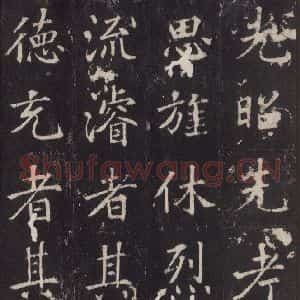 光昭先考
思旌休烈
流濬者其
徳充者其
Shufawang.CN